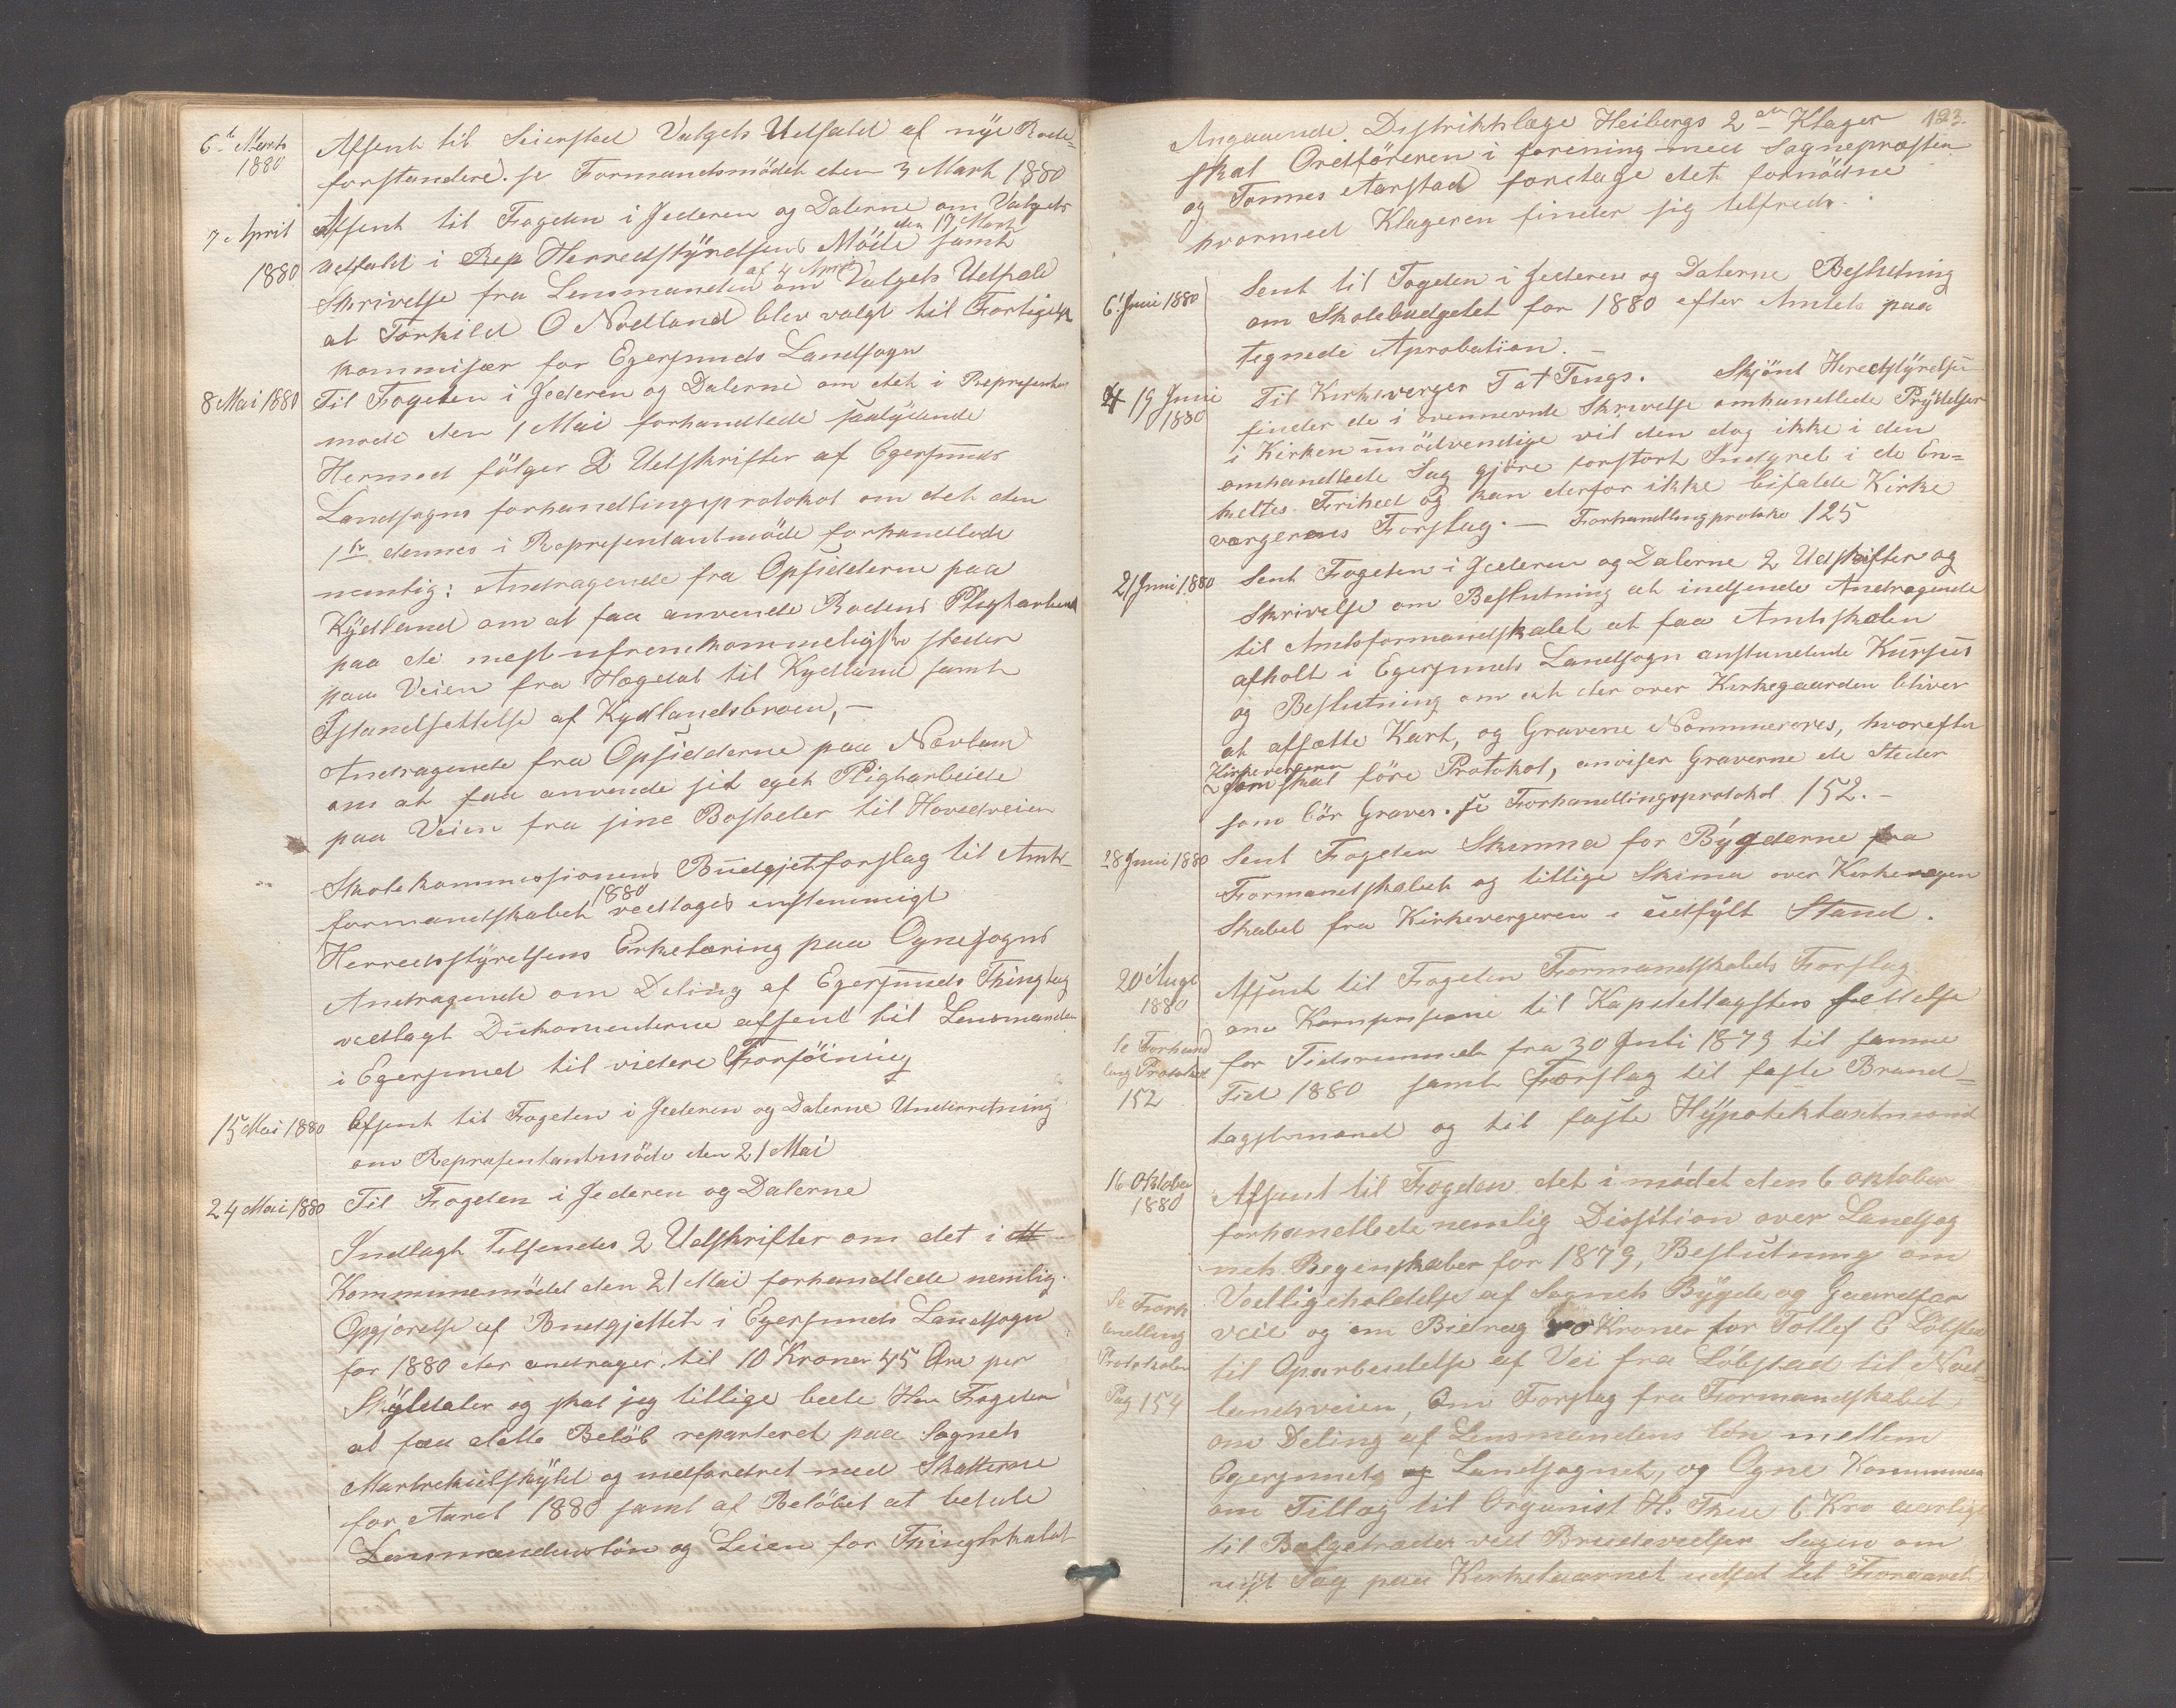 6te Marts
1880
Afsent til Seiersted Valgets Udfald af nye Rode-
forstandere. se Formandsmödet den 3 Mark 1880
7 April
1880
Afsent til Fogden i Jederen og Dalerne om Valgets
den 17 Mark
Udfald i Rep Herredstyrelsens Möde samt
af 4 April
Skrivelse fra Lensmanden om Valgets Udfald
at Torkild O Nodland blev valgt til Forligelses
kommisær for Egersunds Landsogn
8 Mai 1880
Til Fogden i Jederen og Dalerne om det i Represent
möde den 1 Mai forhandlede saalydende
Hermed fölger 2 Udskrifter af Egersunds
Landsogns forhandlingsprotokol om det den
1ste dennes i Represantantmöde forhandlede
nemlig: Andragende fra Opsidderne paa
Kydland om at faa anvende Rodens Pligtarbeide
paa de mest ufremkommeligste steder
paa Veien fra Hægdal til Kydland samt
Istandsettelse af Kydlandsbroen, —
Andragende fra Opsidderne paa Nevland
om at faa anvende sit eget Pligtarbeide
paa Veien fra sine Bosteder til Hovedveien
Skolekommissionens Budgjetforslag til Amts-
1880
formandskabet vedtoges enstemmigt
Herredsstyrelsens Erkelæring paa Ognesogns
Andragende om Deling af Egersunds Thinglag
vedlagt Dukomenterne affsent til Lensmanden
i Egersund til videre Forföining
15 Mai 1880
Afsent til Fogden i Jederen og Dalerne Underretning
om Represantantmöde den 21 Mai
24 Mai 1880
Til Fogden i Jederen og Dalerne
Indlagt Tilsendes 2 Udskrifter om det i
Kommunemödet den 21 Mai forhandlede nemlig
Opgjorelse af Budgjettet i Egersunds Landsogn
for 1880 der andrager til 10 Kroner 45 Öre per
Skyldaler og skal jeg tillige bede Her Fogden
at faa dette Belöb reparteret paa Sognets
Martrekulskyld og indfordret med Skatterne
for Aaret 1880 samt af Belöbet at betale
Lensmandenslön og Leien for Tinglokalet
123.
Angaaende Distriktslæge Heibergs 2den Klager
skal Ordföreren i forening med Sognepræsten
og Tonnes Aarstad foretage det fornödne
hvormed Klageren finder sig tilfreds.
6t Juni 1880
Sent til Fogden i Jederen og Dalerne Beslutning
om Skolebudgetet for 1880 efter Amtets paa
tegnede Aprobation. —
19 Junie
1880
Til Kirkeverger T at Tengs. Skjönt Heredstyrelsen
finder de i ovennevnte Skrivelse omhandlede Prydelser
i Kirken unödvendige vil den dog ikke i den
omhandlede Sag gjöre forstort Indgreb i de En=
keltes Frihed og kan derfor ikke bifalde Kirke
værgerens Forslag. — Forhandlingprotoko 125
21 Juni 1880
Sent Fogden i Jederen og Dalerne 2 Udskrifter og
Skrivelse om Beslutning at indsende Andragende
til Amtsformandskabet at faa Amtsskolen
afholt i Egersunds Landsogn anstundende Kursus
og Beslutning om at der over Kirkegaarden bliver
at afsætte Kart, og Gravene Nommereres, hvorefter
Kirkevergeren
som skal före Protokol, anviser Graverne de Steder
som bör Graves. se Forhandlingsprotokol 152. —
28 Juni 1880
Sent Fogden Skemma for Bygderne fra
Formandskabet og tillige Skima over Kirkeregen
skabet fra Kirkevergeren i udfylt Stand.
20 Augt
1880
Se Forhand
ling Protokol
152
Afsent til Fogden Formandskabets Forslag
om til Kapiteltagstens settelse
for Tidsrummet fra 30 Juli 1879 til samme
Tid 1880 samt Forslag til faste Brand-
tagstmænd og til faste Hypotektaxtmænd
16 Oktober
1880
Se Forh
andling
Protokolen
Pag 154
Afsent til Fogden det i mödet den 6 oktober
forhandlede nemlig Disistion over Landsog
nets Regenskaber for 1879, Beslutning om
Vedligeholdelse af Sognets Bygde og Gaardfar
veie og om Bidrag Kroner for Tollef E Löbsted
til Oparbeidelse af Vei fra Löbstad til Nod-
landsveien, Om Forslag fra Formandskabet
om Deling af Lensmandens lön mellem
Egersunds og Landsognet, og Ogne Kommune
om Tillæg til Organist H. Thu 6 Kro aarligt
til Balgetræder ved Brudevielser Sagen om
nyt Tag paa Kirketaarnet udsat til Foraaret